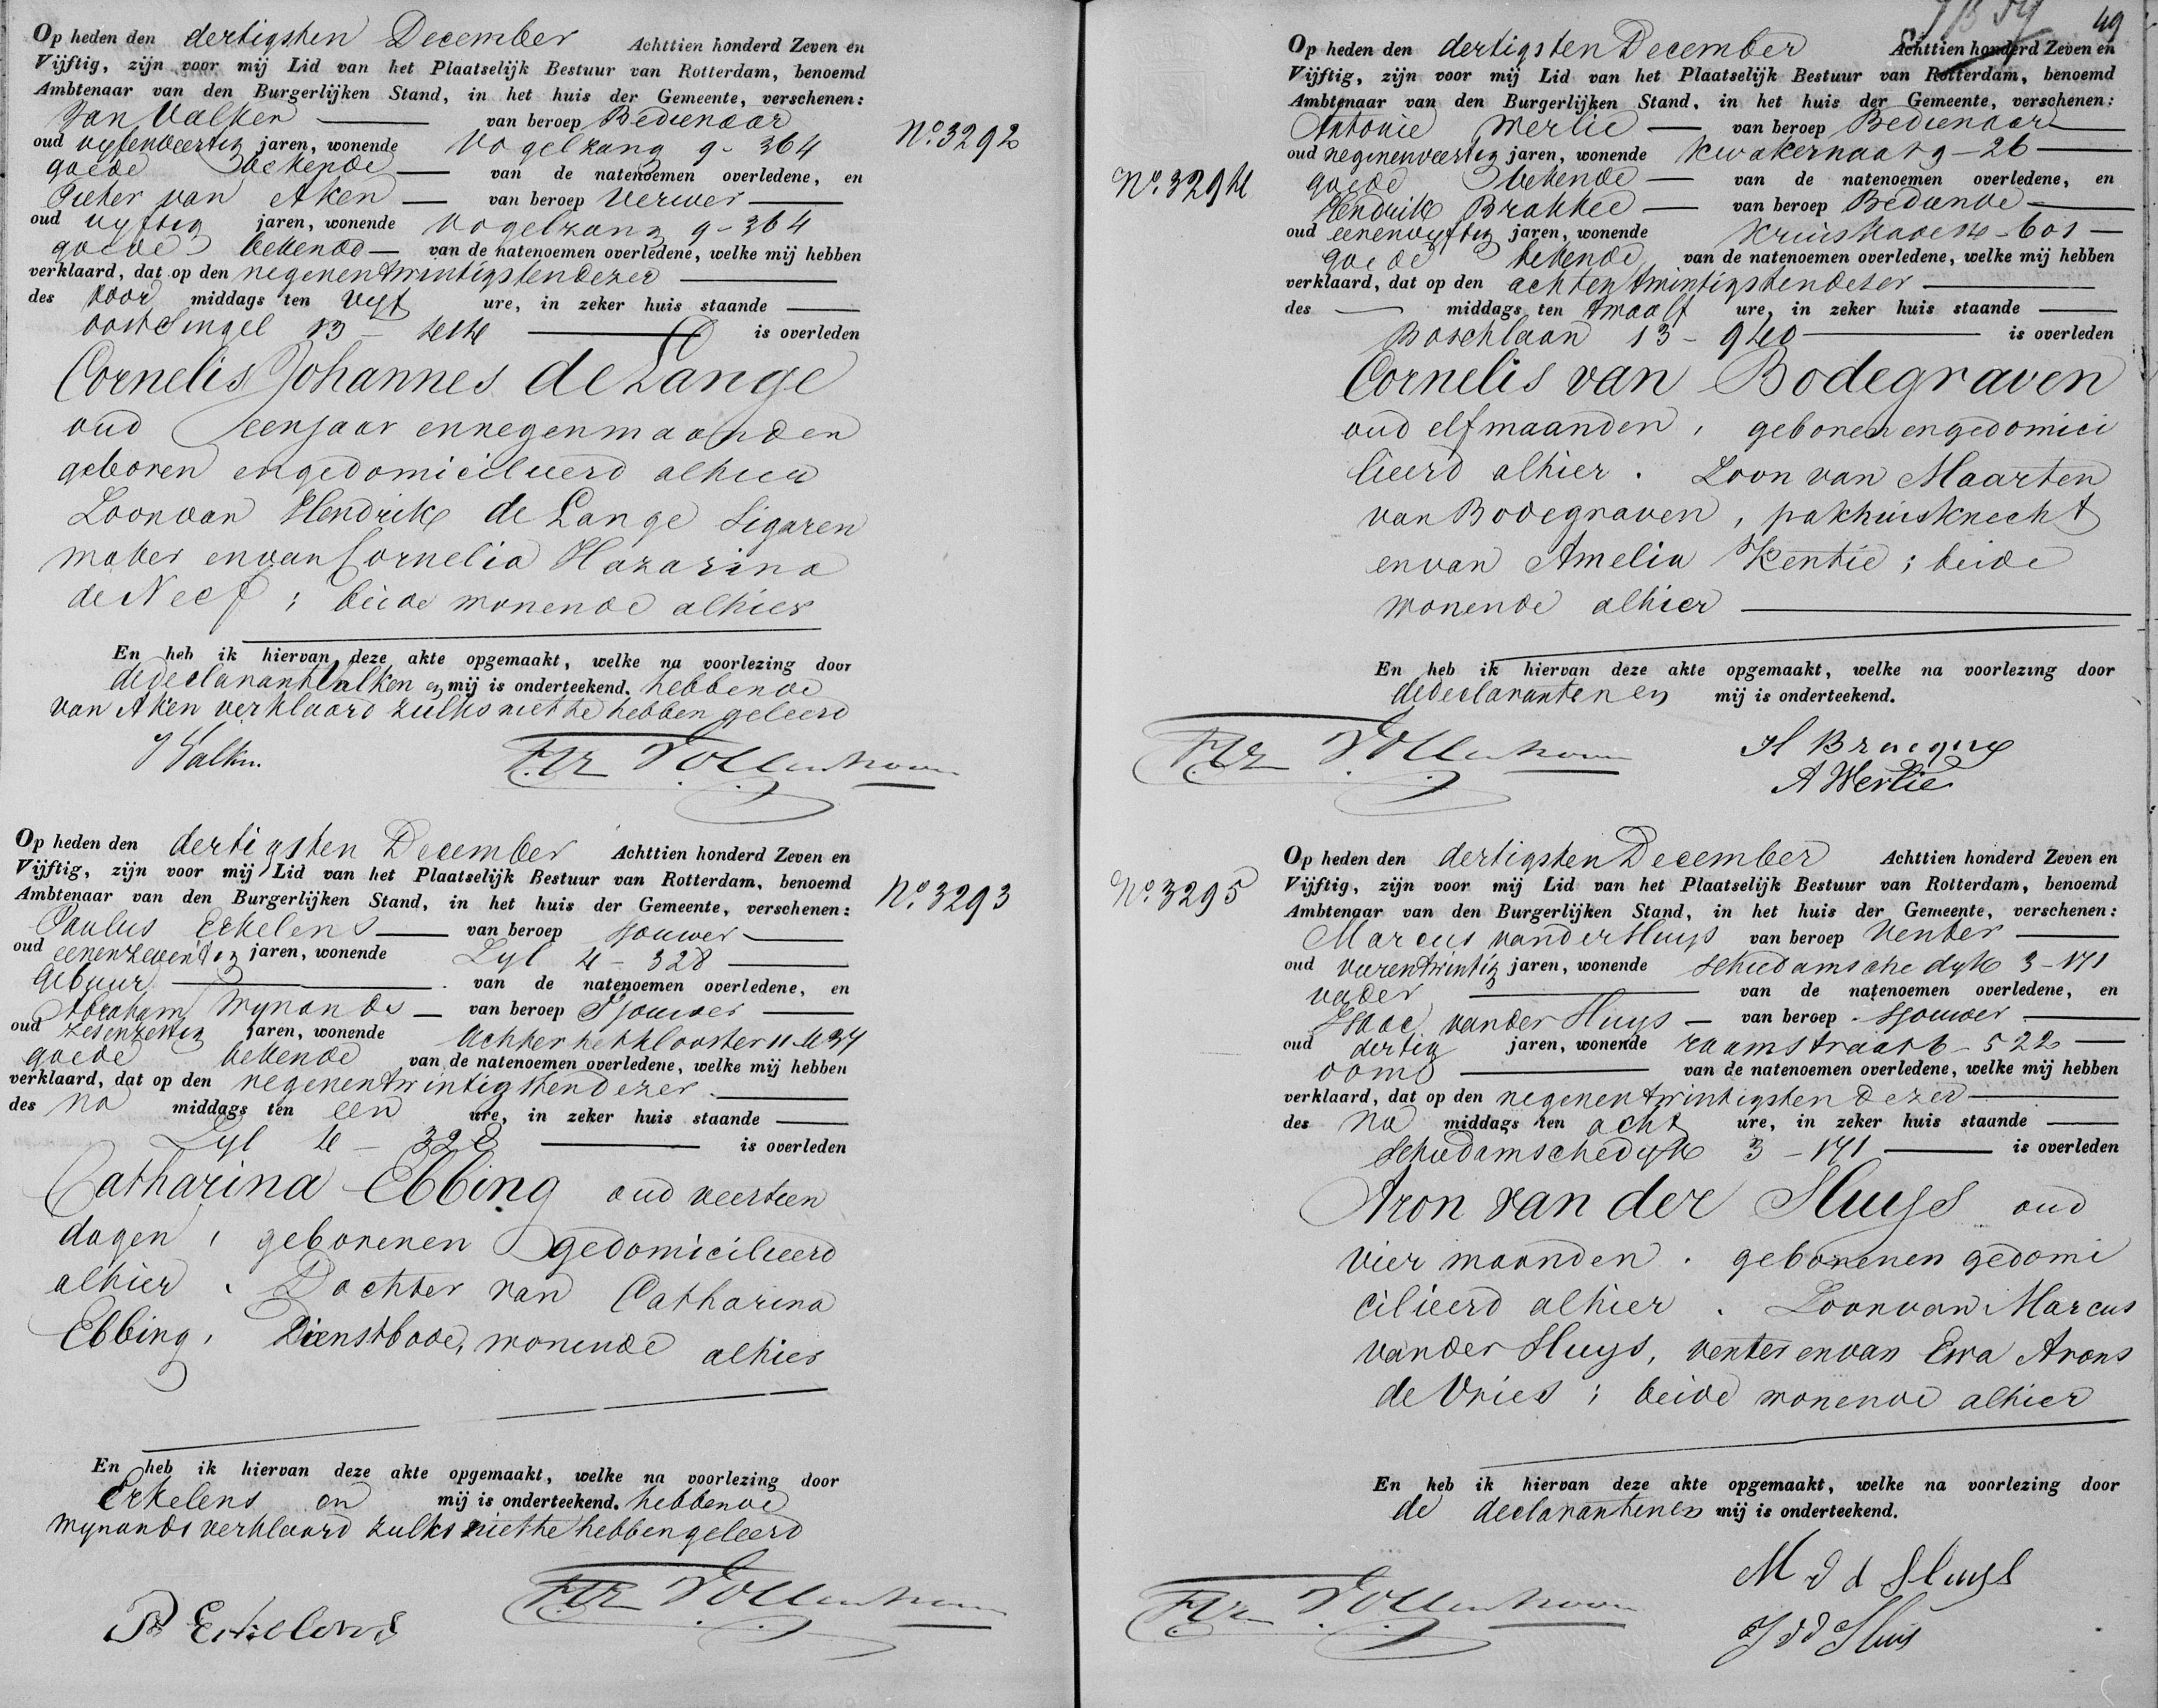 Op heden den dertigsten December Achttien honderd Zeven en
Vijftig, zijn voor mij Lid van het Plaatselijk Bestuur van Rotterdam, benoemd
Ambtenaar van den Burgerlijken Stand, in het huis der Gemeente, verschenen:
Jan Valken van beroep Bedienaar
oud vyfenveertig jaren, wonende Vogelzang 9-364
goede bekende van de natenoemen overledene, en
Pieter van Aken van beroep Verwer
oud vyftig jaren, wonende Vogelzang 9-364
goede bekende van de natenoemen overledene, welke mij hebben
verklaard, dat op den negenentwintigsten dezer
des voor middags ten vyf ure, in zeker huis staande
oostSingel 13 - is overleden
Cornelis Johannes de Lange
oud een jaar en negen maanden
geboren en gedomicilieerd alhier
Zoon van Hendrik de Lange Sigaren
maker en van Cornelia Hazarina
de Neef ; beide wonende alhier
En heb ik hiervan deze akte opgemaakt, welke na voorlezing door
de declarant Valken en mij is onderteekend. hebbende
van Aken verklaard zulks niet te hebben geleerd
J Valken.
No. 3292
Op heden den dertigsten December Achttien honderd Zeven en
Vijftig, zijn voor mij Lid van het Plaatselijk Bestuur van Rotterdam, benoemd
Ambtenaar van den Burgerlijken Stand, in het huis der Gemeente, verschenen:
Paulus Erkelens van beroep sjouwer
oud eenenzeventig jaren, wonende Zyl 4-328
Gebuur van de natenoemen overledene, en
Abraham Mynands van beroep Sjouwer
oud zesenzestig jaren, wonende Achter het klooster 11-
goede bekende van de natenoemen overledene, welke mij hebben
verklaard, dat op den negenentwintigsten dezer
des na middags ten een ure, in zeker huis staande
Zyl 4 - 328 is overleden
Catharina Ebbing oud veertien
dagen, geboren en gedomicilieerd
alhier. Dochter van Catharina
Ebbing, Dienstbode, wonende alhier
En heb ik hiervan deze akte opgemaakt, welke na voorlezing door
Erkelens en mij is onderteekend. hebbende
Mynands verklaard zulks niet te hebben geleerd
P Erkelens
No. 3293
49
Op heden den dertigsten December Achttien honderd Zeven en
Vijftig, zijn voor mij Lid van het Plaatselijk Bestuur van Rotterdam, benoemd
Ambtenaar van den Burgerlijken Stand, in het huis der Gemeente, verschenen:
Antonie Werlie van beroep Bedienaar
oud negenenveertig jaren, wonende Kwakernaat 9-26
goede bekende van de natenoemen overledene, en
Hendrik Brakkee van beroep Bediende
oud eenenvyftig jaren, wonende Kruiskade 14-601
goede bekende van de natenoemen overledene, welke mij hebben
verklaard, dat op den achtentwintigsten dezer
des middags ten twaalf ure, in zeker huis staande
Boschlaan 13-940 is overleden
Cornelis van Bodegraven
oud elf maanden, geboren en gedomici
lieerd alhier. Zoon van Maarten
van Bodegraven, pakhuisknecht
en van Amelia Kentie; beide
wonende alhier
En heb ik hiervan deze akte opgemaakt, welke na voorlezing door
de declaranten en mij is onderteekend.
A Werlie
No. 3294
Op heden den dertigsten December Achttien honderd Zeven en
Vijftig, zijn voor mij Lid van het Plaatselijk Bestuur van Rotterdam, benoemd
Ambtenaar van den Burgerlijken Stand, in het huis der Gemeente, verschenen:
Marcus van der Sluys van beroep Venter
oud vierentwintig jaren, wonende Schiedamsche dyk 3-171
vader van de natenoemen overledene, en
Isaac van der Sluys van beroep Sjouwer
oud dertig jaren, wonende raamstraat 6-522
oom van de natenoemen overledene, welke mij hebben
verklaard, dat op den negenentwintigsten dezer
des Na middags ten acht ure, in zeker huis staande
Schiedamschedyk 3-171 is overleden
Aron van der Sluys oud
vier maanden. geboren en gedomi
cilieerd alhier. Zoon van Marcus
van der Sluys, venter en van Eva Arons
de Vries; beide wonende alhier
En heb ik hiervan deze akte opgemaakt, welke na voorlezing door
de declaranten en mij is onderteekend.
M v d Sluys
J v d Sluis
No. 3295